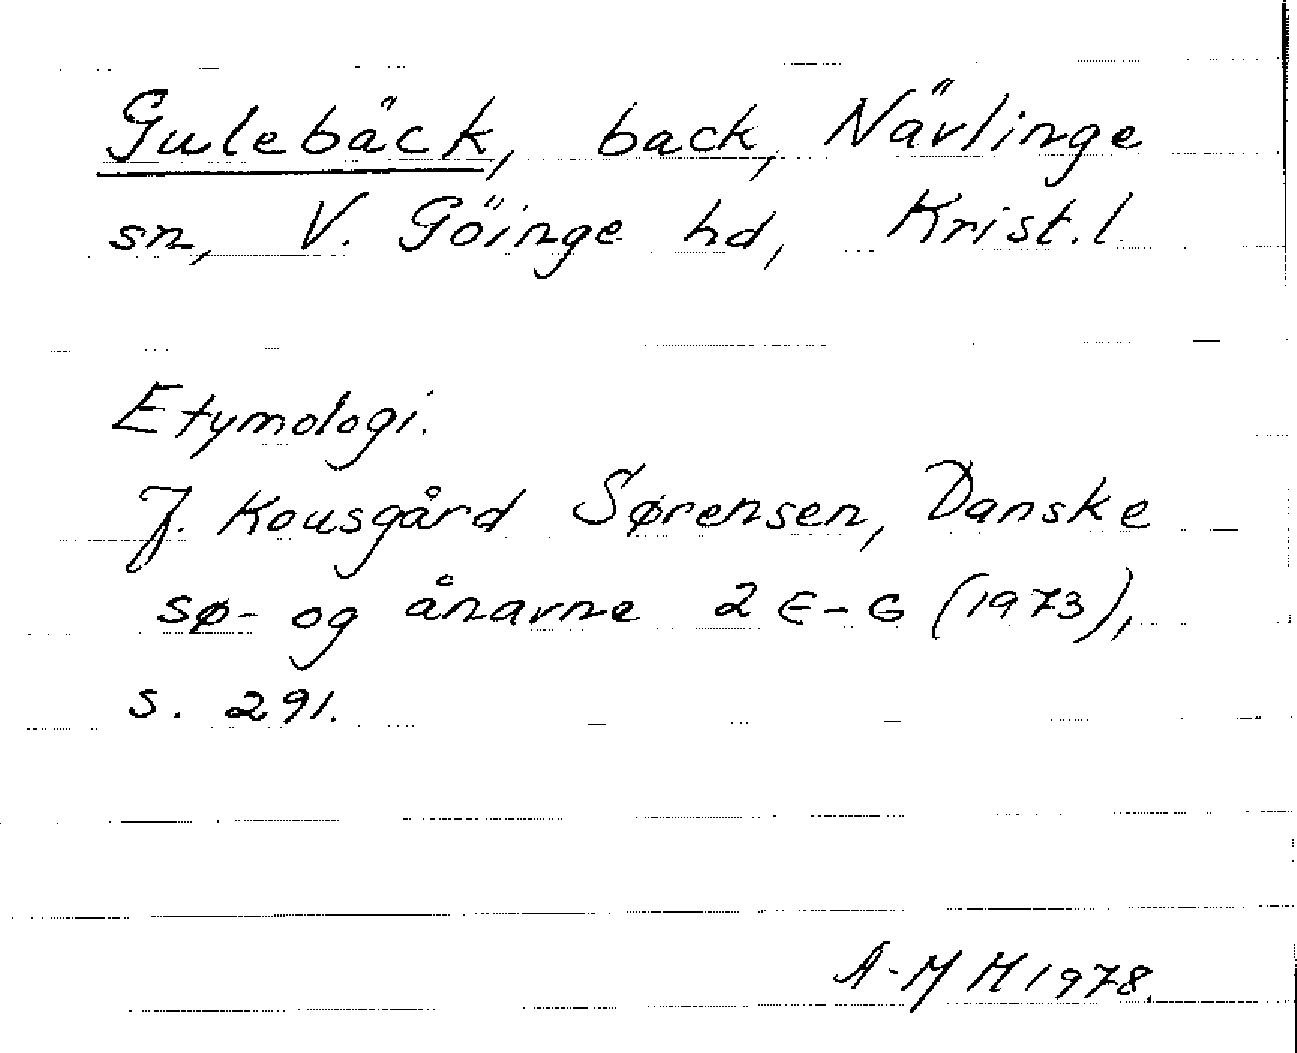 Gulebäck, back, Nävlinge
sn, V. Göinge hd, Krist.l
Etymologi.
J. Kousgård Sørensen, Danske
sø- og ånavne 2 E-G (1973),
s. 291.
A-M H 1978.